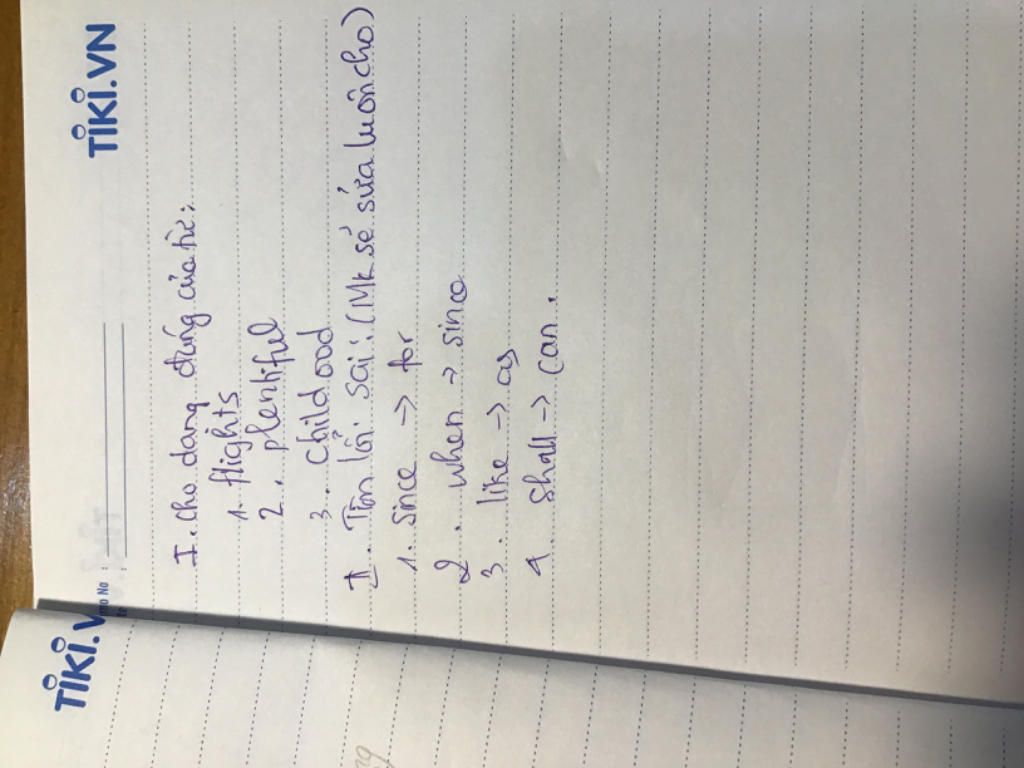 TiKi.VN
I. Cho dạng đúng của từ:
1. flights
2. plentiful
3. child ood
II. Tìm lỗi sai: (Mk sẽ sửa luôn cho)
1. since -> for
2. when -> since
3. like -> as
4 shall -> can.
TiKi.V
mo No